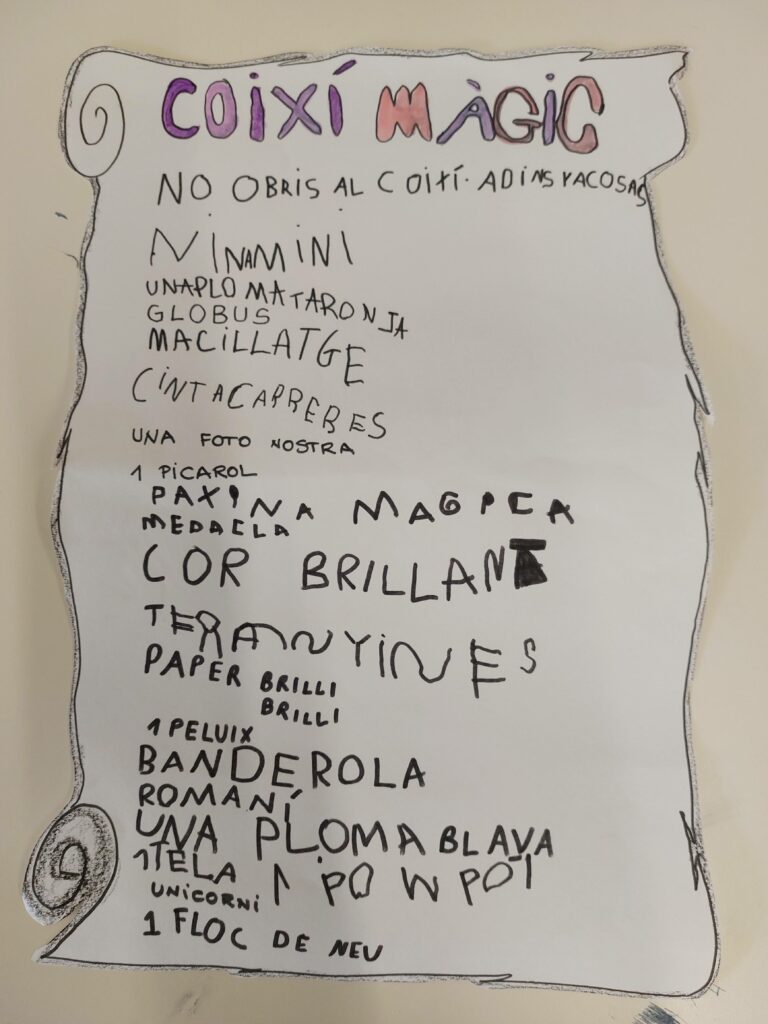 COIXÍ MÀGIC
NO OBRIS AL COIXÍ. ADINS YACOSAS
NINAMINI
UNAPLOMATARONJA
GLOBUS
MACILLATGE
CINTACAPREBES
UNA FOTO NOSTRA
1 PICAROL
PAXINA MAGICA
MEDACLA
COR BRILLANT
TERANYINES
PAPER BRILLI
BRILLI
1 PELUIX
BANDEROLA
ROMANÍ
UNA PLOMA BLAVA
1 TELA
UNICORNI
1 POWPOT
1 FLOC DE NEU